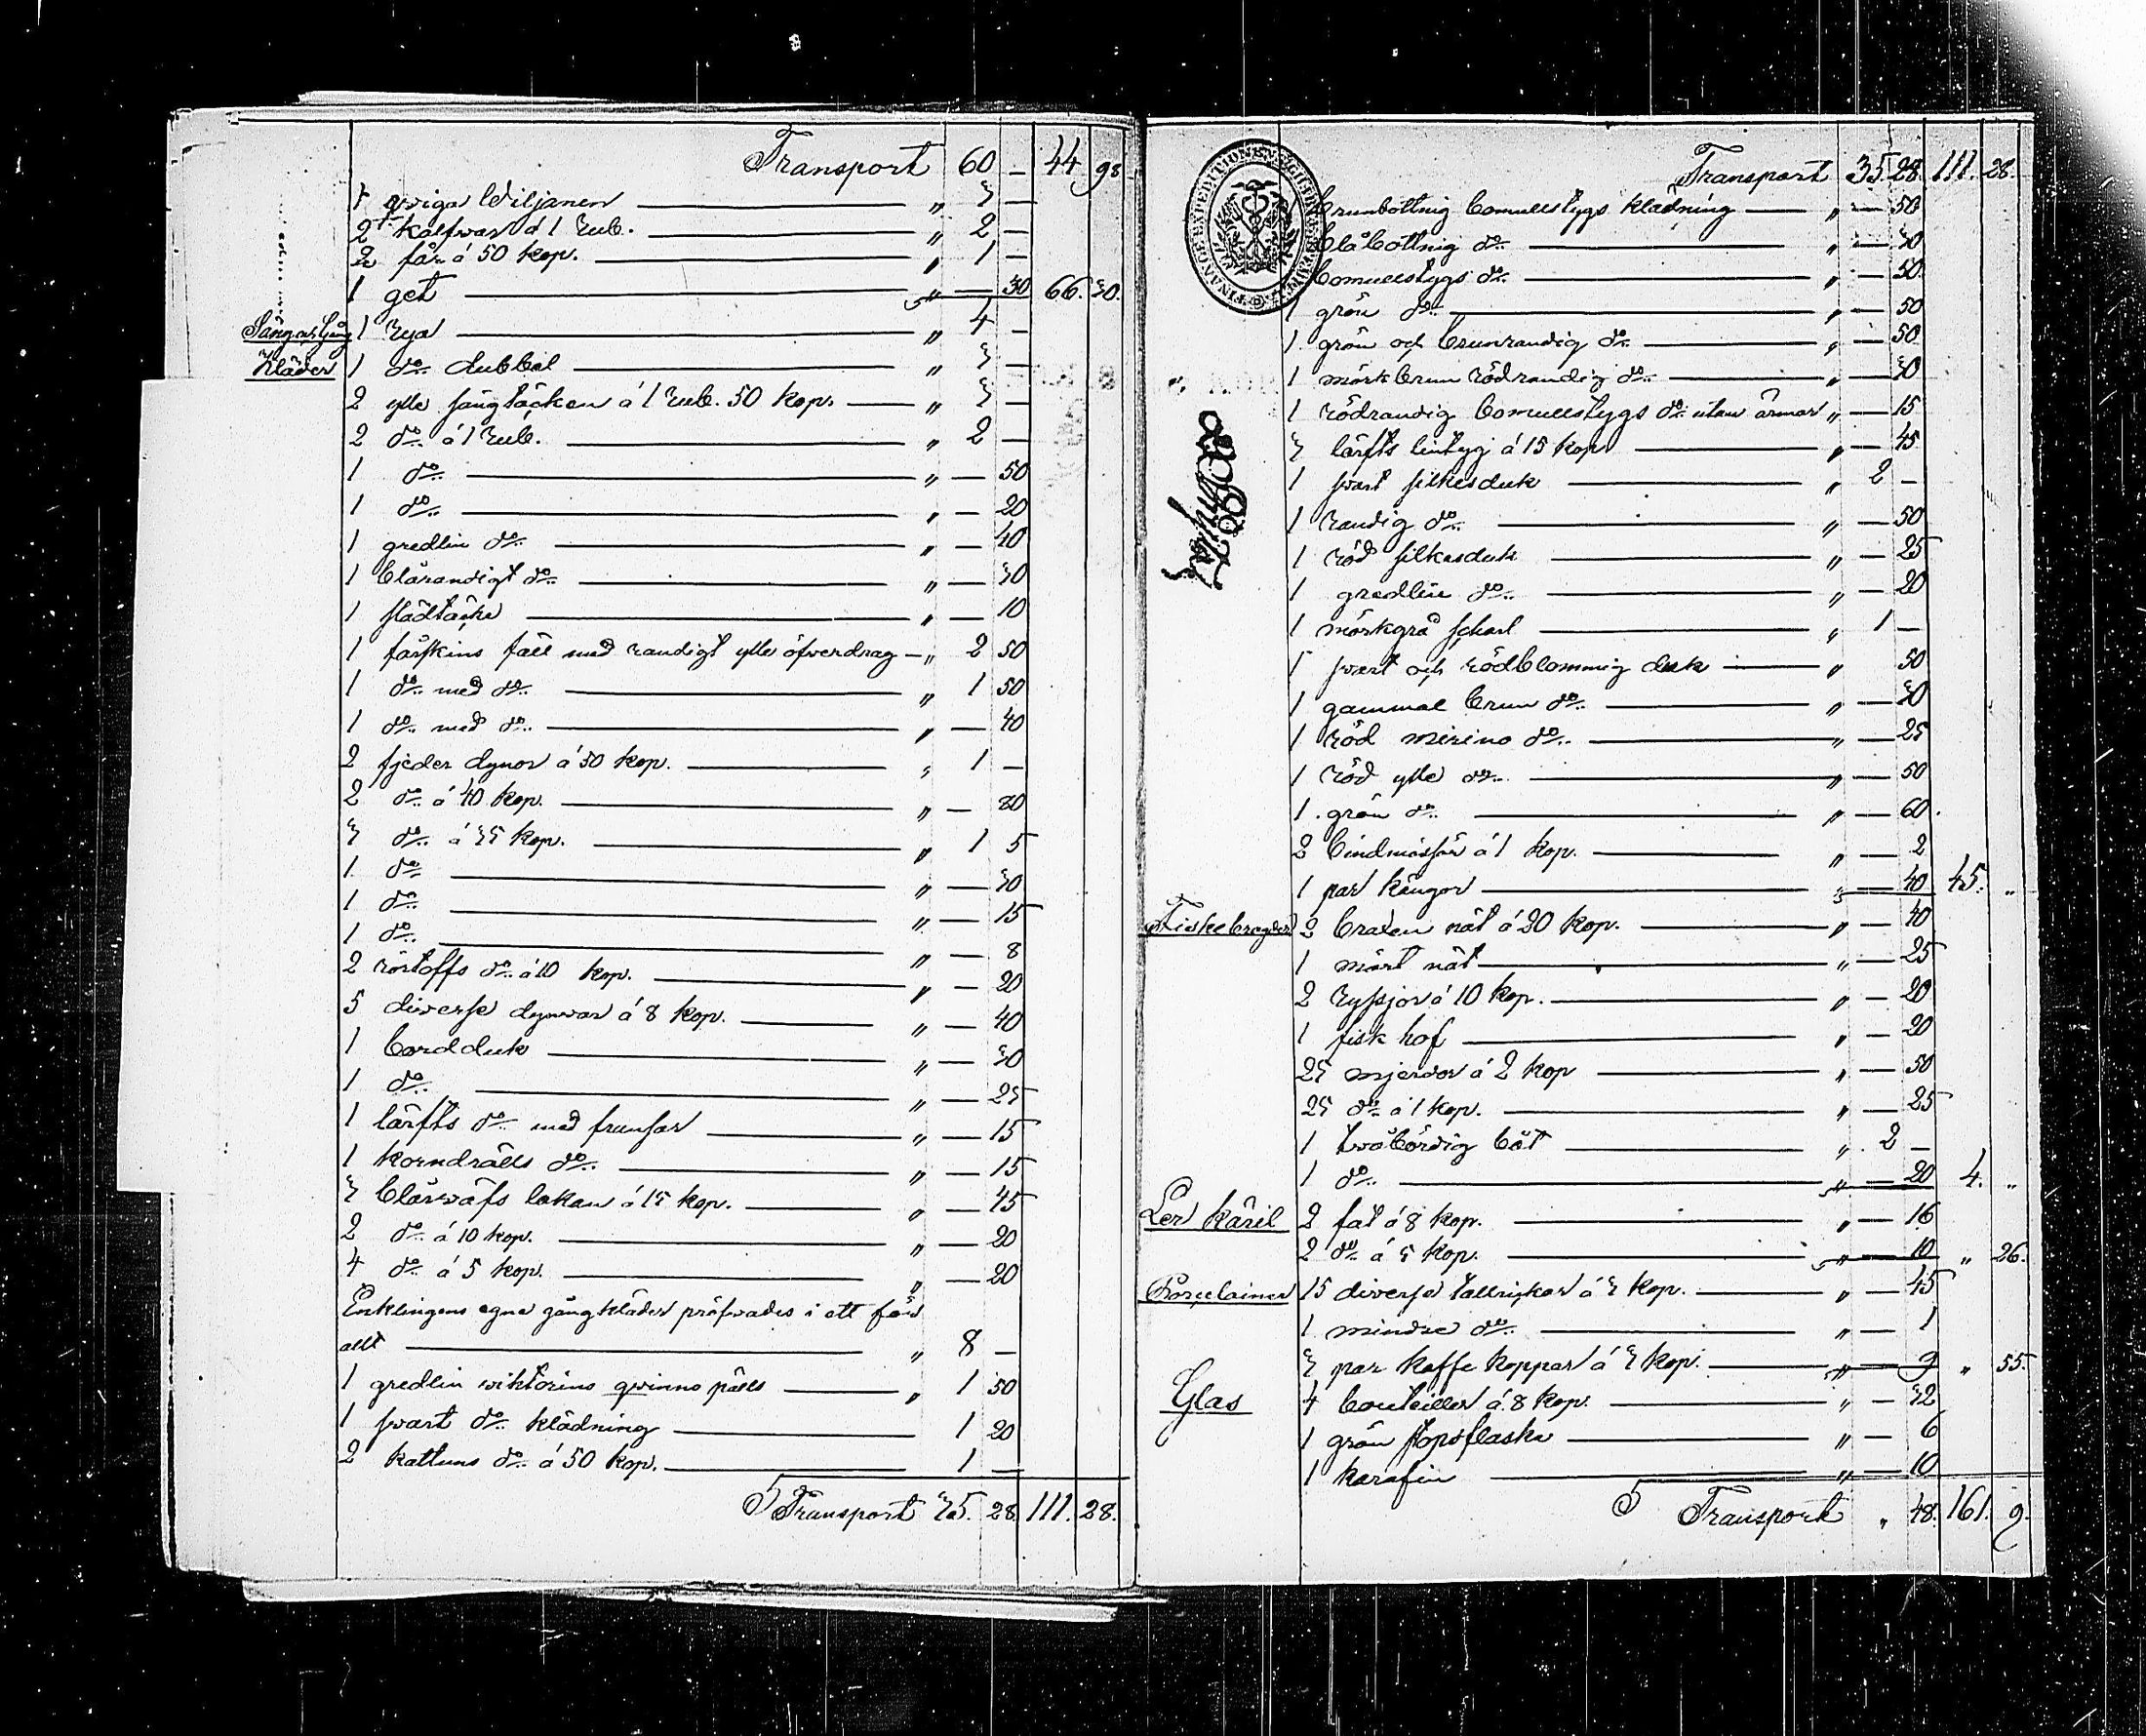 Transport 60 — 44 98
1 qviga Wiljanen „ 3 —
2 kalfvar á 1 Rub. „ 2 —
2 får á 50 kop. „ 1 —
1 get „ — 30 66. 30.
Säng och Gång 1 Rya „ 4 —
Kläder 1 do dubbel „ 3 —
2 ylle sängtäcken á 1 Rub. 50 kop. „ 3 —
2 do á 1 Rub. „ 2 —
1 do „ — 50
1 do „ — 20
1 gredlin do „ — 40
1 blårandigt do „ — 30
1 slädtäcke „ — 10
1 fårskins fäll med randigt ylle öfverdrag „ 2 50
1 do med do „ 1 50
1 do med do „ — 40
2 fjeder dynor á 50 kop. „ 1 —
2 do á 40 kop. „ — 80
3 do á 35 kop. „ 1 5
1 do „ — 30
1 do „ — 15
1 do „ — 8
2 rörstoffs do á 10 kop. „ — 20
5 diverse dynvar á 8 kop. „ — 40
1 bordduk „ — 30
1 do „ — 25
1 lärfts do med fransar „ — 15
1 korndrälls do „ — 15
3 blårväfs lakan á 15 kop. „ — 45
2 do á 10 kop. „ — 20
4 do á 5 kop. „ — 20
Enklingens egna gångkläder pröfvades i ett för
allt „ 8 —
1 gredlin wiktorins qvinno päls „ 1 50
1 svart do klädning 1 20
2 kattuns do á 50 kop. 1 —
Transport 35. 28 111. 28.
Transport 35 28 111. 28.
FINANCE EXPEDITIONEN
brunbottnig bomullstygs klädning „ — 50
blåbottnig do „ — 30
bomullstygs do „ — 50
1 grön do „ — 50
1 grön och brunrandig do „ — 50
1 mörkbrun rödrandig do „ — 30
1 rödrandig bomullstygs do utan ärmar „ — 15
3 lärfts lintyg á 15 kop „ — 45
1 svart silkesduk „ 2 —
1 randig do „ — 50
1 röd silkesduk „ — 25
1 gredlin do „ — 20
1 mörkgrå schal „ 1 —
1 svart och rödblommig duk „ 50
1 gammal brun do „ — 30
1 röd merino do „ — 25
1 röd ylle do „ — 50
1 grön do „ — 60.
2 bindmössor á 1 kop. „ — 2
1 par kängor „ — 40 45. „
Fiskebragder 2 braxen nät á 20 kop. „ — 40
1 mört nät „ — 25
2 ryssjor á 10 kop. „ — 20
1 fisk hof „ — 20
25 mjerdor á 2 kop „ — 50
25 do á 1 kop. „ — 25
1 tvåbördig båt „ 2 —
1 do „ — 20 4. „
Ler käril 2 fat á 8 kop. „ — 16
2 do á 5 kop. „ — 10 „ 26.
Porcelainer 15 diverse tallrikar á 3 kop. „ — 45
1 mindre do „ — 1
3 par kaffe koppar á 3 kop. „ — 9 „ 55.
Glas 4 bouteiller á 8 kop. „ — 32
1 grön stopsflaska „ — 6
1 karafin „ — 10
Transport „ 48. 161. 9.